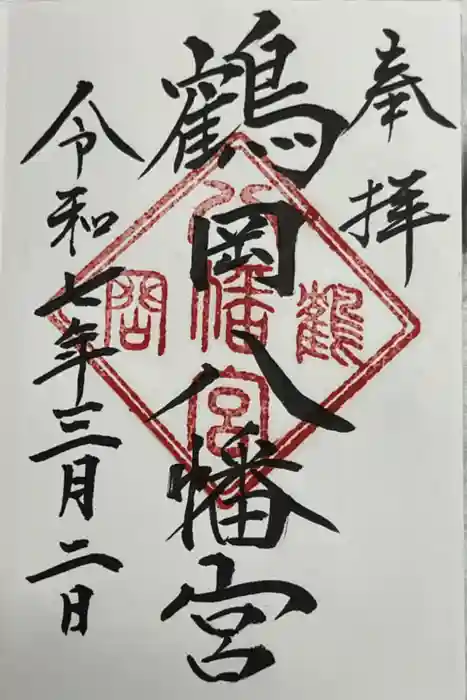 奉拝
鶴岡八幡宮
鶴
八幡宮
岡
令和七年三月二日